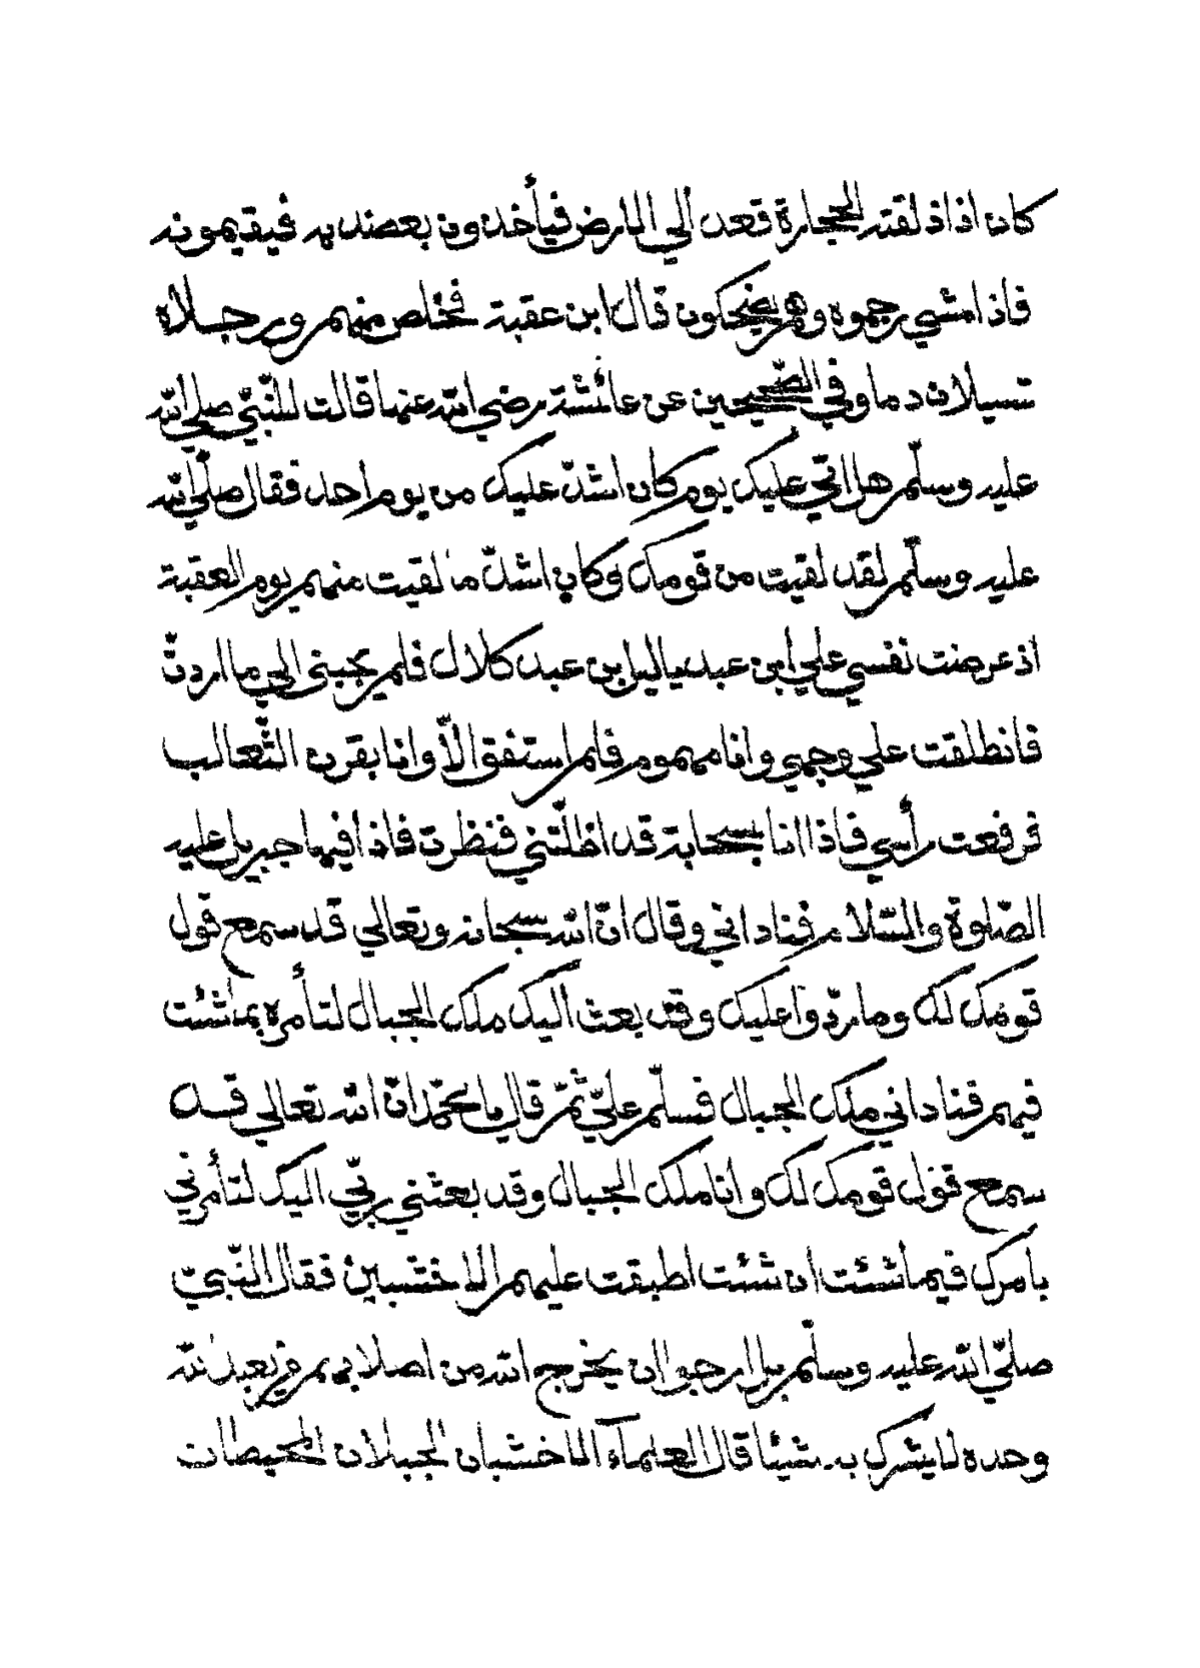 كان اذا اذلقته الحجارة قعد الي الارض فيأخذون بعضديه فيقيمونه
فاذا مشي رجموه وهم يضحكون قال ابن عقبة فخلص منهم ورجلاه
تسيلان دما وفي الصّحيحين عن عائشة رضي الله عنها قالت للنّبيّ صلي الله
عليه وسلّم هل اتي عليك يوم كان اشدّ عليك من يوم احد فقال صلّي الله
عليه وسلّم لقد لقيت من قومك وكان اشدّ ما لقيت منهم يوم العقبة
اذ عرضت نفسي علي ابن عبد ياليل بن عبد كلال فلم يجبني الي ما اردتّ
فانطلقت علي وجهي وانا مهموم فلم استفق الاّ وانا بقرن الثّعالب
فرفعت رأسي فاذا انا بسحابة قد اظلّتني فنظرت فاذا فيها جبريل عليه
الصّلوة والسّلام فناداني وقال انّ الله سبحانه وتعالي قد سمع قول
قومك لك وما ردّوا عليك وقد بعث اليك ملك الجبال لتأمره بما شئت
فيهم فناداني ملك الجبال فسلّم عليّ ثمّ قال يا محمّد انّ الله تعالي قد
سمع قول قومك لك وانا ملك الجبال وقد بعثني ربّي اليك لتأمرني
بامرك فيما شئت ان شئت اطبقت عليهم الاخشبين فقال النّبيّ
صلّي الله عليه وسلّم بل ارجوا ان يخرج الله من اصلابهم من يعبد الله
وحده لا يشرك به شيئا قال العلمآء الاخشبان الجبلان المحيطان